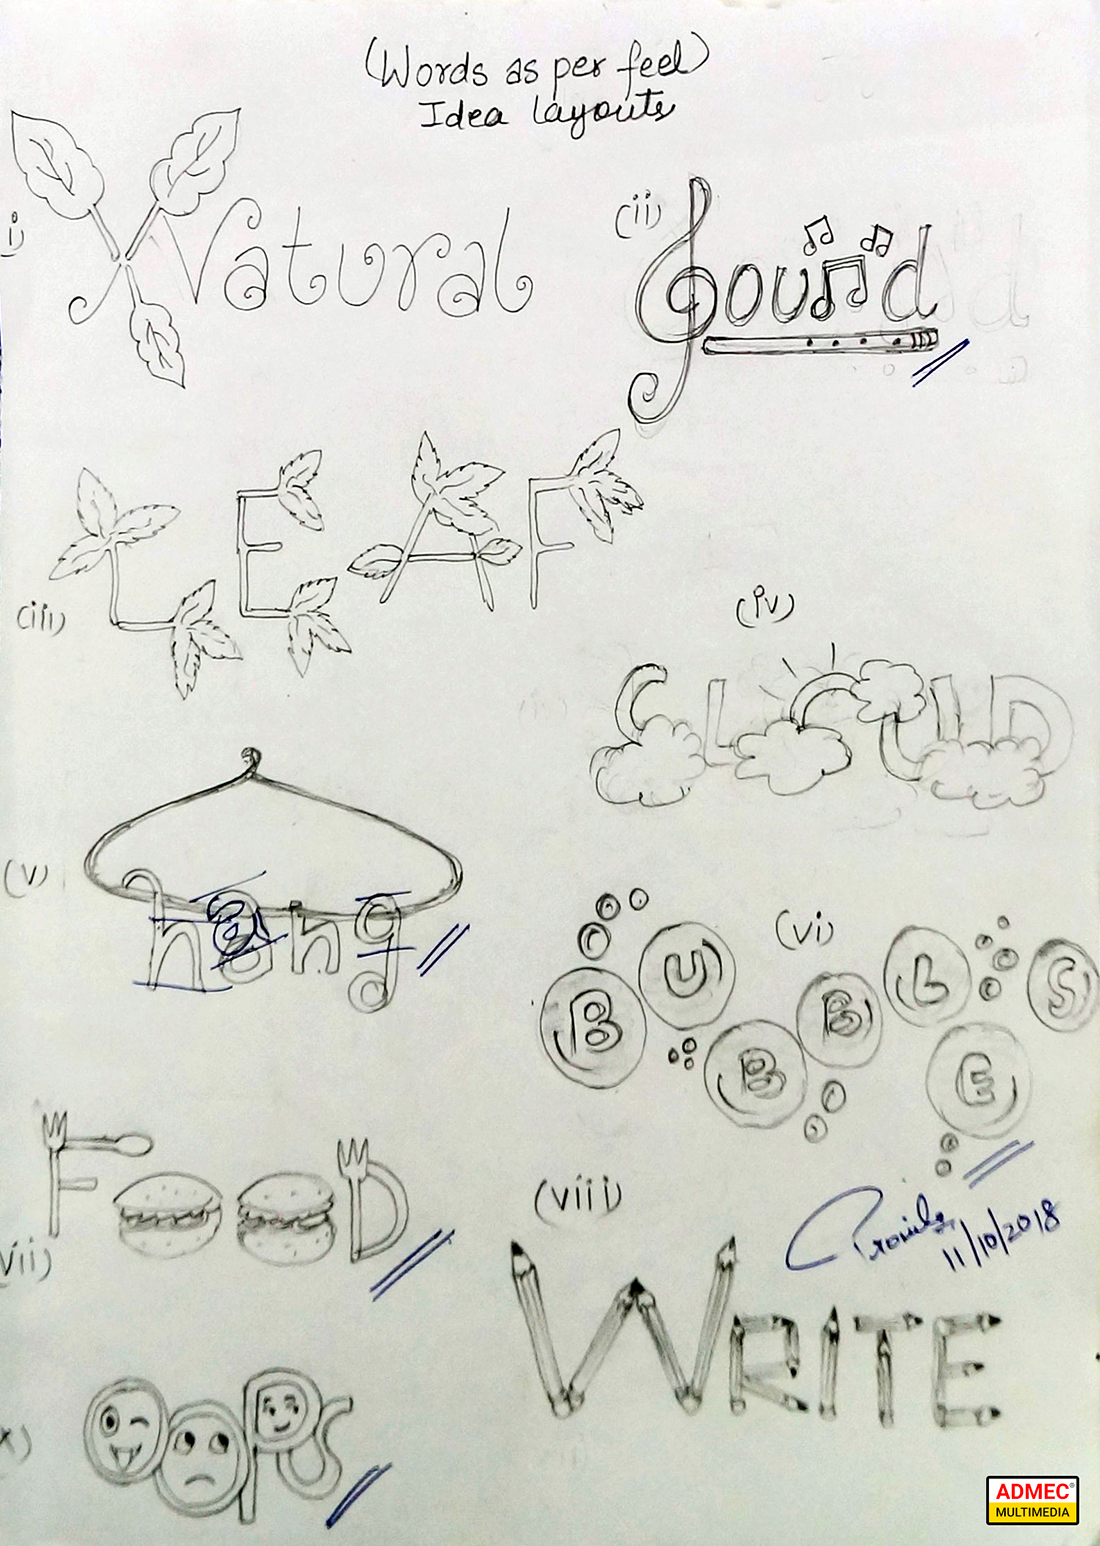 (Words as per feel)
Idea layouts
i)
Natural
(ii)
Sound
(iii)
LEAF
(iv)
CLOUD
(v)
hang
(vi)
BUBBLES
vii)
FOOD
(viii)
WRITE
11/10/2018
x)
OOPS
ADMEC
MULTIMEDIA